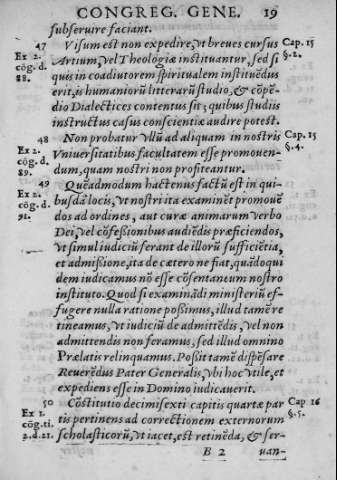 CONGREG. GENE. 19
subseruire faciant.
47 Visum est non expedire, vt breues cursus Cap. 15
Ex 2. Artium, vel Theologiæ instituantur, sed si §. 2.
cōg. d. quis in coadiutorem spiritualem instituēdus
88. erit, is humaniorū litterarū studio, & cōpē-
dio Dialectices contentus sit; quibus studiis
instructus casus conscientiæ audire potest.
48 Non probatur vllū ad aliquam in nostris Cap. 15
Ex 2. Vniuersitatibus facultatem esse promouen- §. 4.
cōg. d. dum, quam nostri non profiteantur.
89.
49 Quēadmodum hactenus factū est in qui-
Ex 2. busdā locis, vt nostri ita examinēt promouē
cōg. d. dos ad ordines, aut curæ animarum verbo
91. Dei, vel cōfeßionibus audiēdis præficiendos,
vt simul iudiciū ferant de illorū sufficiētia,
et admißione, ita de cætero ne fiat, quādoqui
dem iudicamus nō esse cōsentaneum nostro
instituto. Quod si examinādi ministeriū ef-
fugere nulla ratione poßimus, illud tamē re
tineamus, vt iudiciū de admittēdis, vel non
admittendis non feramus, sed illud omnino
Prælatis relinquamus. Poßit tamē dispēsare
Reuerēdus Pater Generalis, vbi hoc vtile, et
expediens esse in Domino iudicauerit.
50 Cōstitutio decimisexti capitis quartæ par Cap 16
Ex 1. tis pertinens ad correctionem externorum §. 5.
cōg. ti.
2. d. 21. scholasticorū, vt iacet, est retinēda, & ser-
B 2 uan-